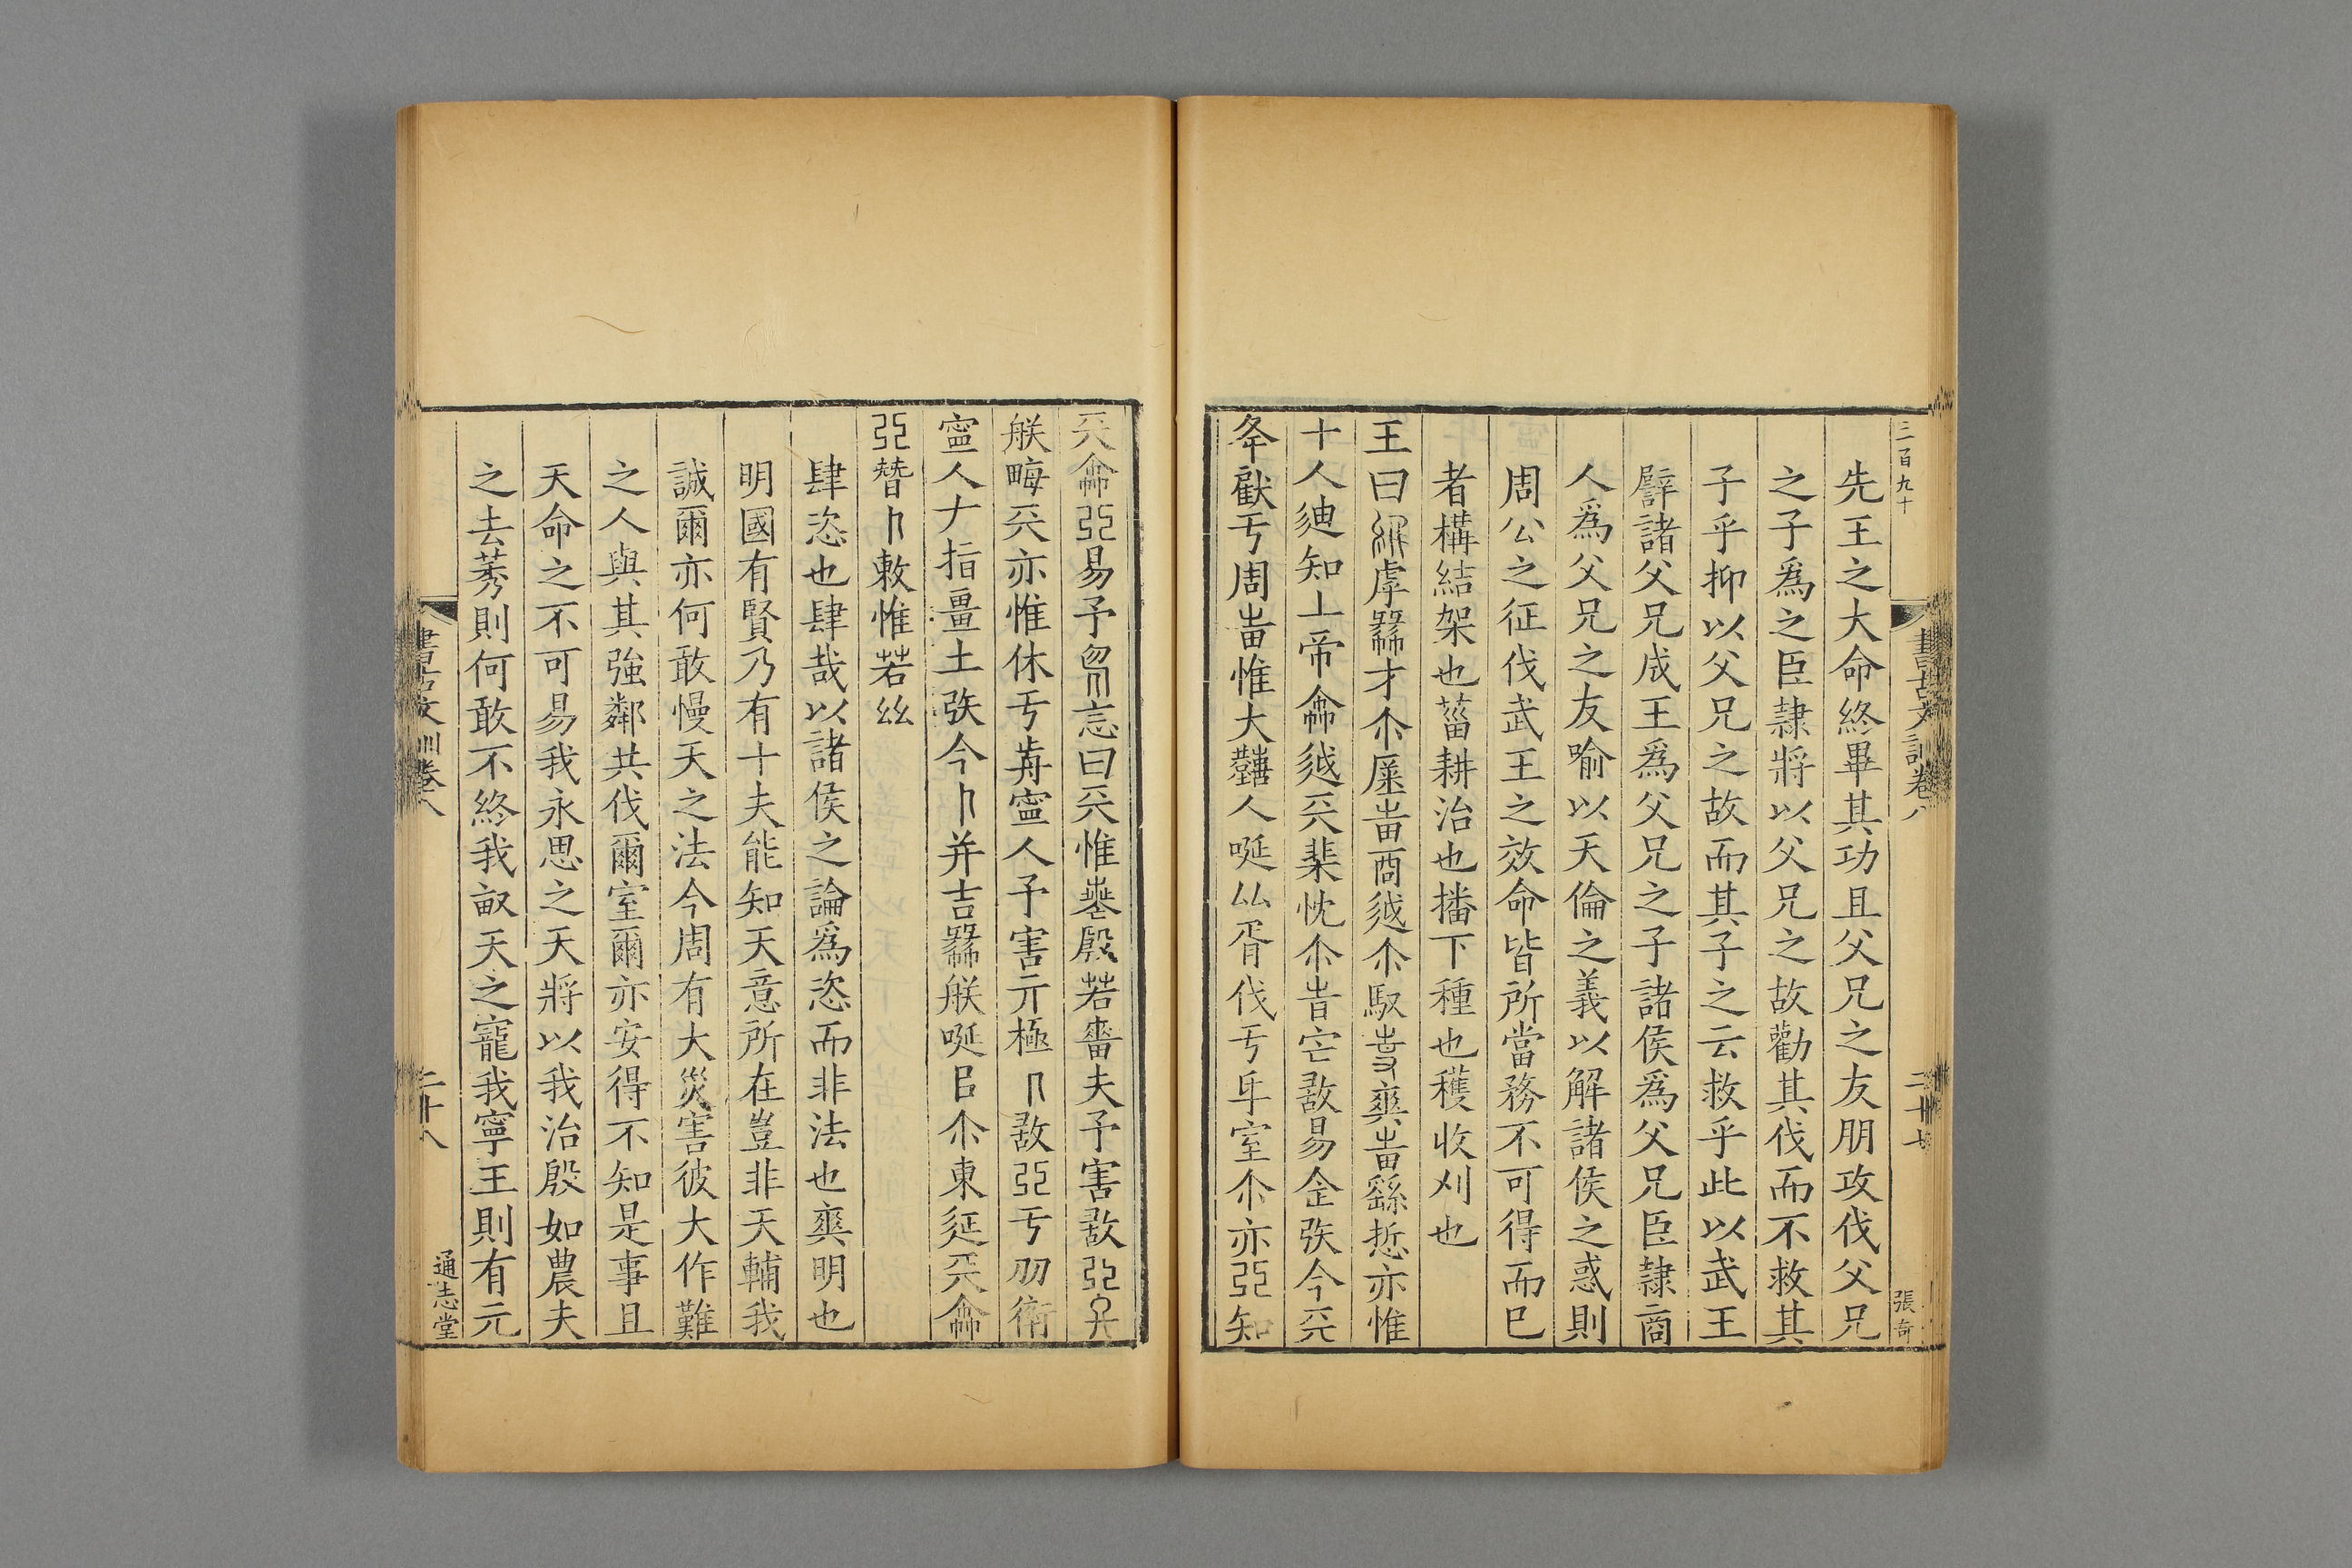 三百九十
書古文訓卷八
二十七
張奇
先王之大命終畢其功且父兄之友朋攻伐父兄
之子爲之臣隷將以父兄之故勸其伐而不救其
子乎抑以父兄之故而其子之云救乎此以武王
辟諸父兄成王爲父兄之子諸侯爲父兄臣隷商
人爲父兄之友喻以天倫之義以解諸侯之惑則
周公之征伐武王之效命皆所當務不可得而已
者構結架也菑耕治也播下種也穫收刈也
王曰虖才尒庶商越尒馭爽繇悊亦惟
十人迪知丄帝越棐忱尒旹敢易企今
献亏周惟大人唌厶胥伐亏室尒亦知
易予曰惟殷若嗇夫予害敢
畮亦惟休亏歬寍人予害亓極敢亏
寍人指畺土今并吉唌尒東延
朁敕惟若
肆恣也肆哉以諸侯之論爲恣而非法也爽明也
明國有賢乃有十夫能知天意所在豈非天輔我
誠爾亦何敢慢天之法今周有大災害彼大作難
之人與其強鄰共伐爾室爾亦安得不知是事且
天命之不可易我永思之天將以我治殷如農夫
之去莠則何敢不終我畝天之寵我寧王則有元
書古文訓卷八
二十八
通志堂